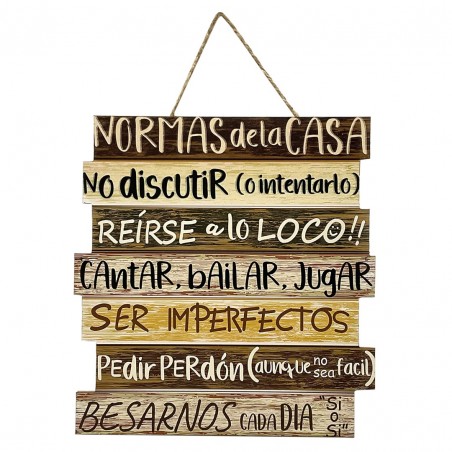 NORMAS de la CASA
NO discutir (o intentarlo)
REÍRSE a lo LOCO!!
CANtAR, bAiLAR, JugAR
SER IMPERFECTOS
PEdir PERdón (aunque no sea facil)
BESARNOS CADA DIA "Si o Si"